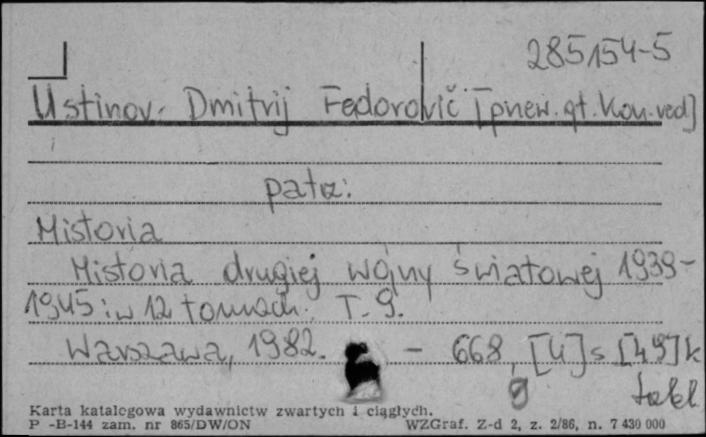 285154-5
Ustinov. Dmitrij Fedorovič
patrz:
Historia
Historia drugiej wojny światowej 1939-
1945: w 12 tomach. T. 9.
Warszawa, 1982. - 668, [4]s [49]k
tabl
Karta katalogowa wydawnictw zwartych i ciągłych.
P -B-144 zam. nr 865/DW/ON WZGraf. Z-d 2, z. 2/86, n. 7 430 000